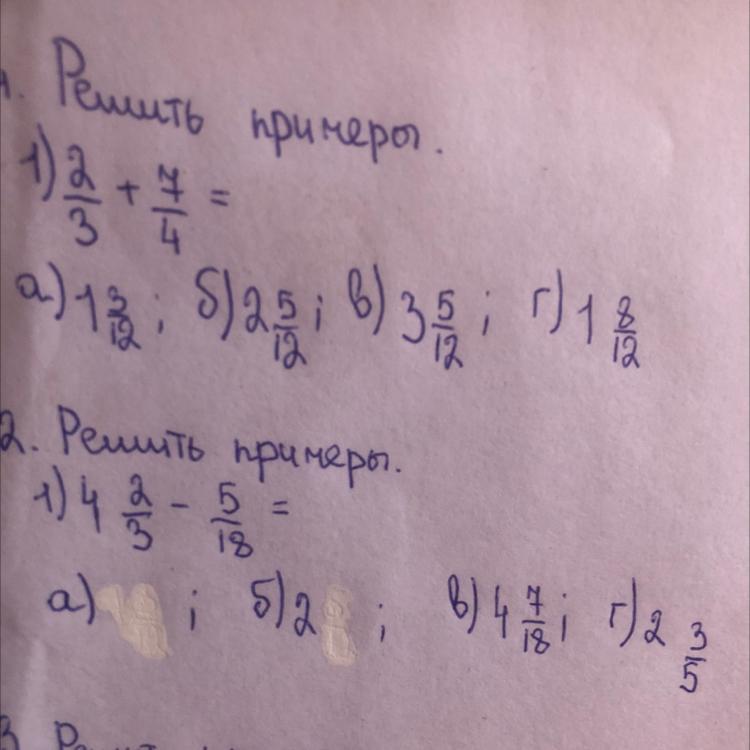 1. Решить примеры.
1) 2/3 + 7/4 =
а) 1 3/12 ; б) 2 5/12 ; в) 3 5/12 ; г) 1 8/12
2. Решить примеры.
1) 4 2/3 - 5/18 =
а) ; б) 2 ; в) 4 7/18 ; г) 2 3/5
3